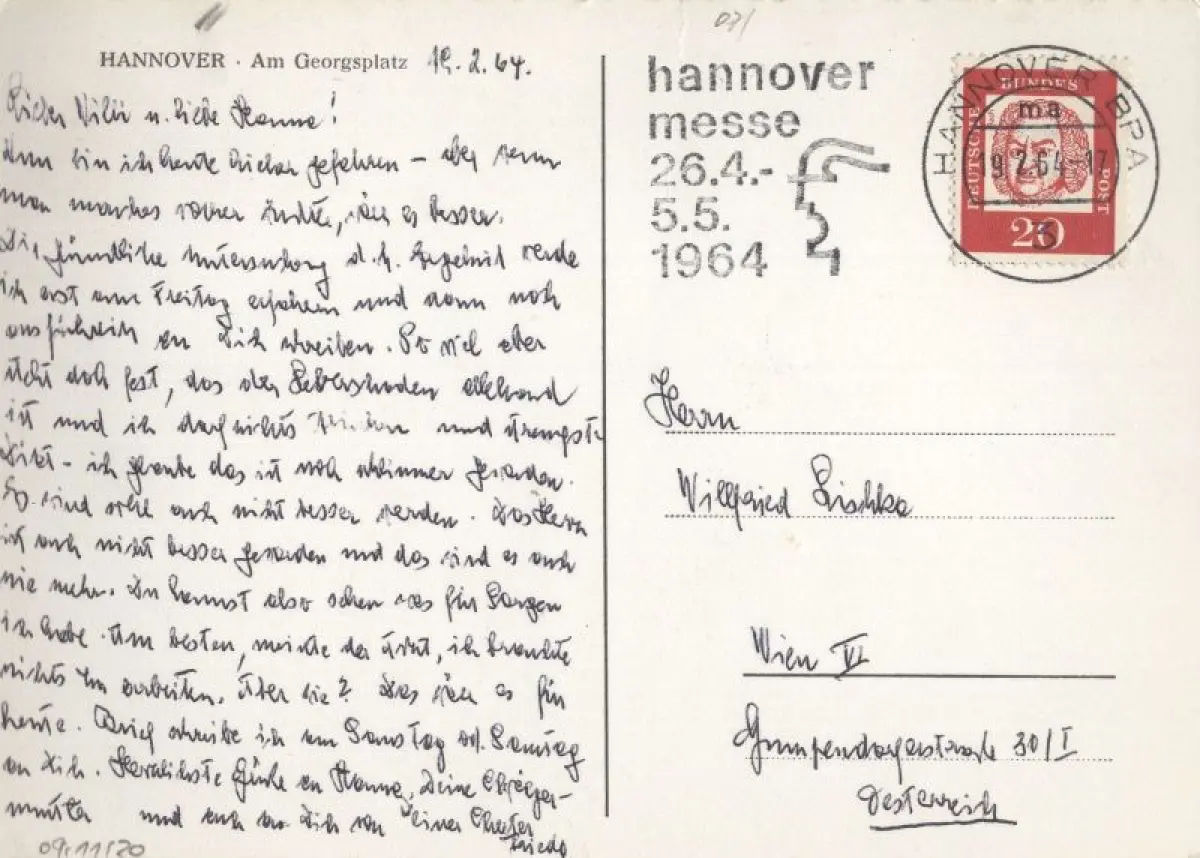 HANNOVER · Am Georgsplatz 19. 2. 64.
Lieber Willi u. liebe Hanna!
Nun bin ich heute hierher gefahren – aber wenn
man manches vorher wüßte, wär es besser.
Die gründliche Untersuchung d.h. Ergebnis werde
ich erst am Freitag erfahren und dann noch
ausführlich an Dich schreiben. So viel aber
steht doch fest, das der Leberschaden allerhand
ist und ich darf nichts trinken und strengste
Diät – ich glaube das ist noch schlimmer geworden.
Es wird wohl auch nicht besser werden. Das Herz
ist auch nicht besser geworden und das wird es auch
nie mehr. Du kannst also sehen was für Sorgen
ich habe. Am besten, meinte der Arzt, ich brauchte
nichts zu arbeiten. Aber wie? Das wär es für
heute. Brief schreibe ich am Samstag od. Sonntag
an Dich. Herzlichste Grüße an Hanna, Deine Schwieger-
mutter und auch an Dich von Deiner
Friedo
09/11/20
hannover
messe
26.4.-
5.5.
1964
HANNOVER BPA
ma
19.2.64-17
DEUTSCHE BUNDESPOST
20
Herrn
Willfried Lischka
Wien VI
Gumpendorferstraße 30/I
Oesterreich